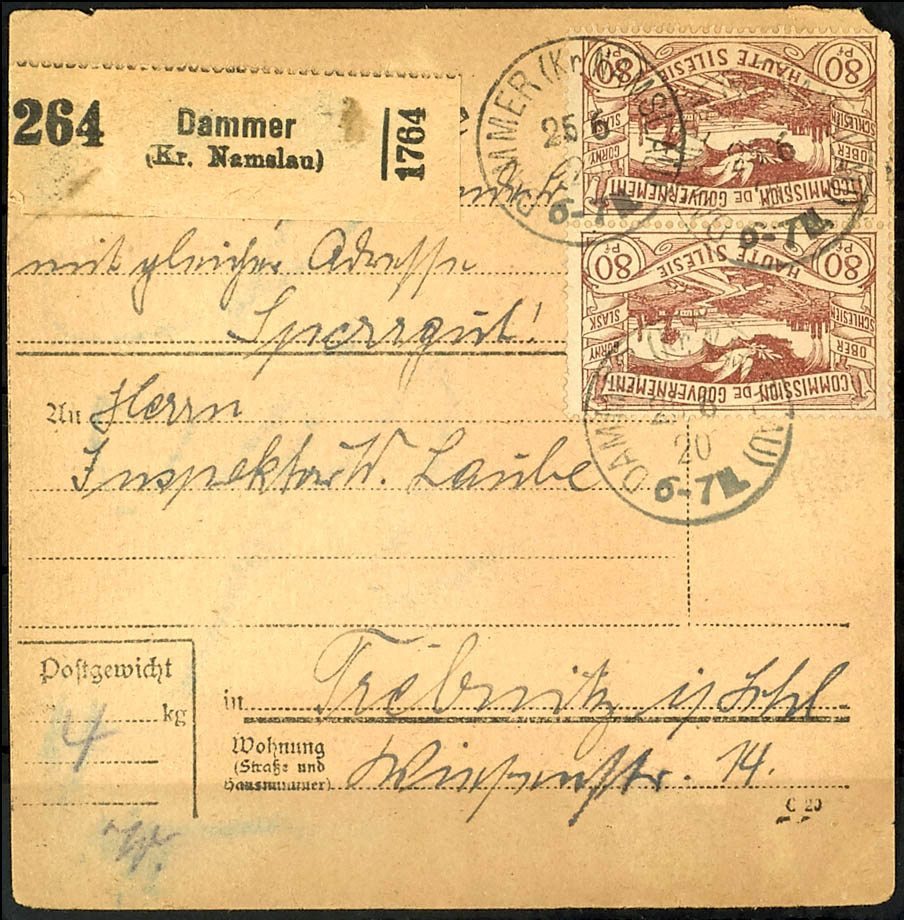 264
Dammer
(Kr. Namslau)
1764
mit gleicher Adresse
Sperrgut!
An Herrn
Inspektor W. Laube
in Trebnitz i/Schl
Wohnung
(Straße und
Hausnummer)
Wiesenstr. 14.
Postgewicht
4 kg
C 20
DAMMER (Kr. NAMSLAU)
25 6
20
6-7N.
80 Pf
HAUTE SILESIE
80 Pf
SCHLESIEN
OBER
ŚLĄSK
GÓRNY
COMMISSION DE GOUVERNEMENT
80 Pf
HAUTE SILESIE
80 Pf
SCHLESIEN
OBER
ŚLĄSK
GÓRNY
COMMISSION DE GOUVERNEMENT